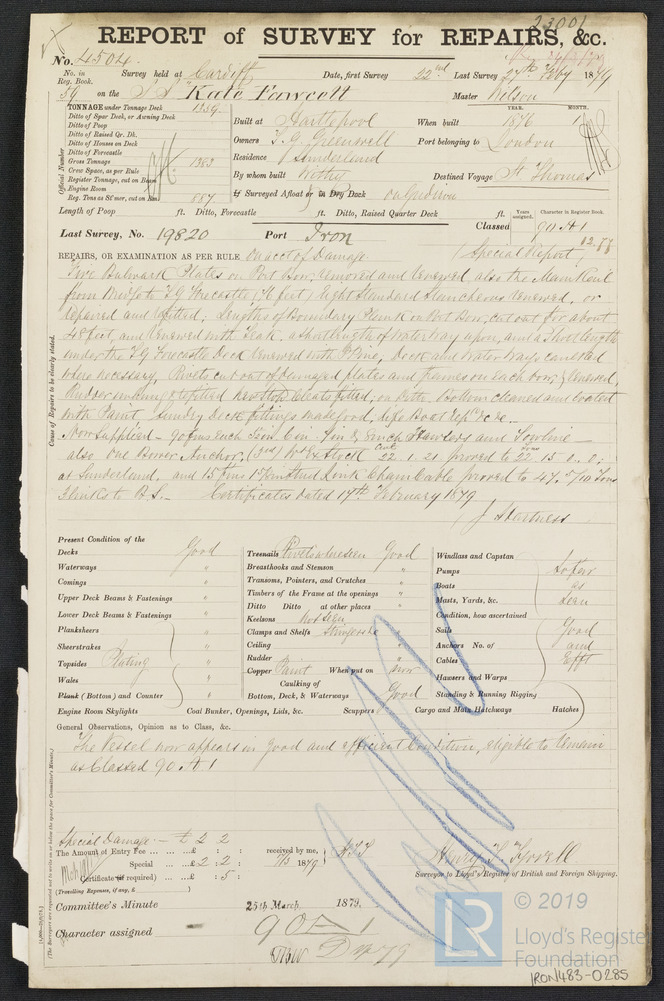 23001
REPORT of SURVEY for REPAIRS, &c.
No. 4504
No. in Reg. Book. Survey held at Cardiff Date, first Survey 22nd Last Survey 27th Feby 1879
59 on the S S "Kate Fawcett Master Wilson
TONNAGE under Tonnage Deck 1359.
Ditto of Spar Deck, or Awning Deck
Ditto of Poop
Ditto of Raised Qr. Dk.
Ditto of Houses on Deck
Ditto of Forecastle
Gross Tonnage 1383
Crew Space, as per Rule
Register Tonnage, cut on Beam
Engine Room
Reg. Tons as St'mer, cut on Bm 887.
Official Number
YEAR. MONTH.
Built at Hartlepool When built 1876
Owners T. G. Greenwell Port belonging to London
Residence Sunderland
By whom built Withy Destined Voyage St Thomas
If Surveyed Afloat or in Dry Dock on Gridiron
Length of Poop ft. Ditto, Forecastle ft. Ditto, Raised Quarter Deck ft.
Years assigned. Character in Register Book.
Last Survey, No. 19820 Port Iron Classed 90 A 1
REPAIRS, OR EXAMINATION AS PER RULE, on acct of Damage. (Special Report, 12.77
Five Bulwark Plates on Port Bow, removed and renewed, also the Main Rail
from Bridge to T.G Forecastle (76 feet) Eight Standard Stancheons renewed, or
repaired and refitted, Lengths of Boundary Plank on Port Bow, cut out for about
48 feet, and renewed with Teak, a short length of Water Way upon, and a short length
under the T.G Forecastle Deck renewed with P. Pine, Deck and Water Ways caulked
where necessary, Rivets cut out of damaged plates and frames on each bow, & renewed,
Rudder unhung & refitted, new stop Cleats fitted, on Ditto. Bottom cleaned and coated
with Paint, Sundry Deck fittings made good, Life Boat repd &c &c —
Now Supplied — 90 fms each
also One Bower Anchor, (3rd) Wt Ex Stock 22. 1. 21 proved to 22. 15. 0. 0;
at Sunderland, and 15 fms Stud Link Chain Cable proved to 47. 5/10 Tons
Certificates dated 17th February 1879
Cause of Repairs to be clearly stated.
Present Condition of the
Decks Good
Waterways "
Comings "
Upper Deck Beams & Fastenings "
Lower Deck Beams & Fastenings "
Planksheers "
Sheerstrakes "
Topsides Plating "
Wales "
Plank (Bottom) and Counter "
Engine Room Skylights
Treenails Rivets where seen Good
Breasthooks and Stemson "
Transoms, Pointers, and Crutches "
Timbers of the Frame at the openings "
Ditto Ditto at other places "
Keelsons Not seen
Clamps and Shelfs Stringers do
Ceiling "
Rudder "
Copper Paint When put on now
Caulking of
Bottom, Deck, & Waterways Good
Coal Bunker, Openings, Lids, &c. Scuppers
Windlass and Capstan
Pumps So far
Boats as
Masts, Yards, &c. seen
Condition, how ascertained
Sails Good
Anchors No. of and
Cables Efft
Hawsers and Warps
Standing & Running Rigging
Cargo and Main Hatchways Hatches
General Observations, Opinion as to Class, &c.
The Vessel now appears in good and efficient Condition, eligible to remain
as Classed 90 A 1
Special Damage — £ 2 2
The Amount of Entry Fee ... ...£ : : received by me,
Special ... ...£ 2 : 2 : 7/3 1879
Certificate (if required) ...£ : 5 :
(Travelling Expenses, if any, £ )
Surveyor to Lloyd's Register of British and Foreign Shipping.
Committee's Minute 25th March 1879.
Character assigned 90 A 1
© 2019
LR
Lloyd's Register
Foundation
IRON483-0285